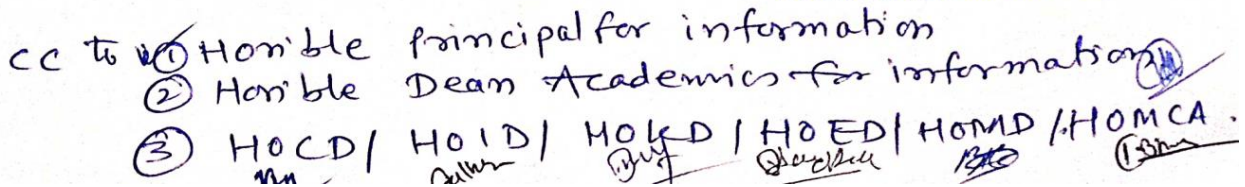 CC to ① Hon'ble Principal for information
② Hon'ble Dean Academics for information
③ HOCD/ HOID/ HOKD / HOED/ HOMD / HOMCA.